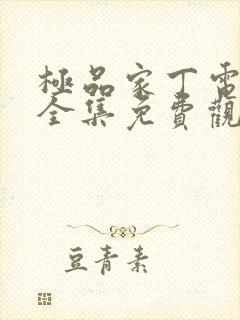 極品家丁電
全集免費觀
豆青素